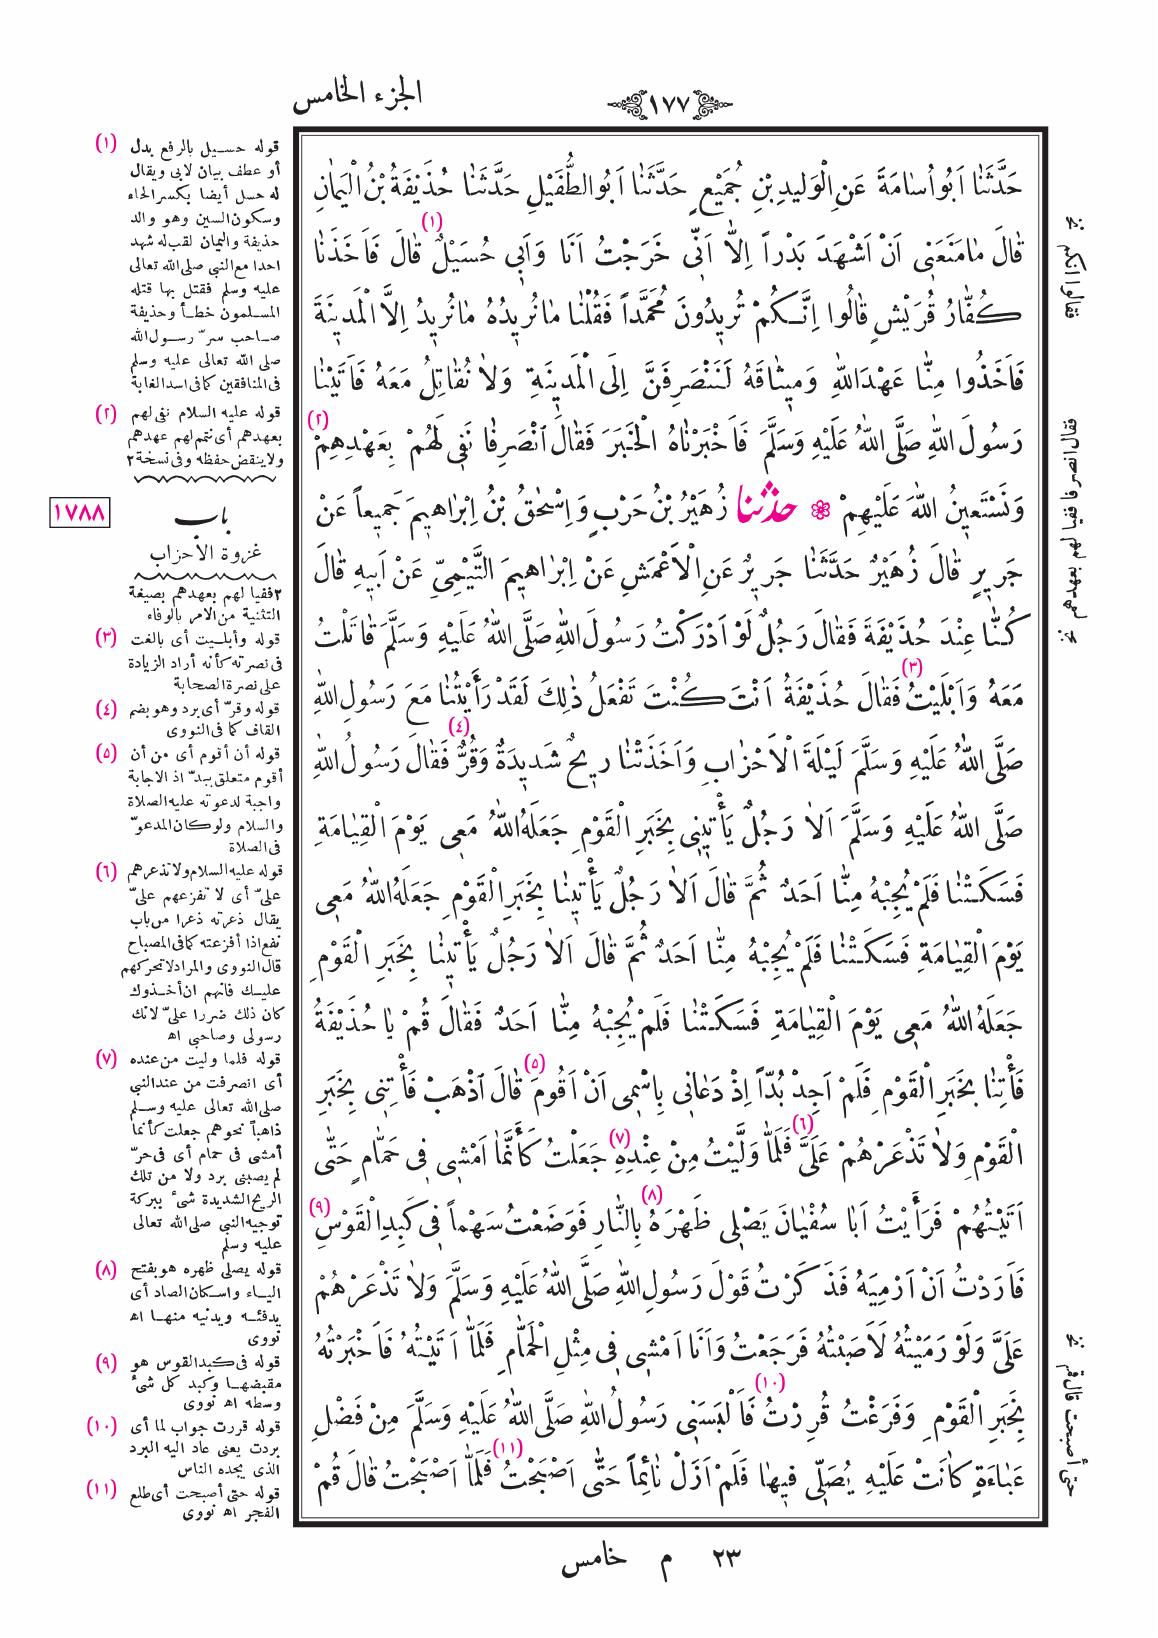 ١٧٧
الجزء الخامس
حَدَّثَنَا اَبُو اُسَامَةَ عَنِ الْوَلِيدِ بْنِ جُمَيْعٍ حَدَّثَنَا اَبُو الطُّفَيْلِ حَدَّثَنَا حُذَيْفَةُ بْنُ الْيَمَانِ
قَالَ مَا مَنَعَنِى اَنْ اَشْهَدَ بَدْراً اِلاَّ اَنِّى خَرَجْتُ اَنَا وَاَبِى حُسَيْلٌ (١) قَالَ فَاَخَذَنَا
كُفَّارُ قُرَيْشٍ قَالُوا اِنَّكُمْ تُرِيدُونَ مُحَمَّداً فَقُلْنَا مَا نُرِيدُهُ مَا نُرِيدُ اِلاَّ الْمَدِينَةَ
فَاَخَذُوا مِنَّا عَهْدَ اللهِ وَمِيثَاقَهُ لَنَنْصَرِفَنَّ اِلَى الْمَدِينَةِ وَلاَ نُقَاتِلُ مَعَهُ فَاَتَيْنَا
رَسُولَ اللهِ صَلَّى اللهُ عَلَيْهِ وَسَلَّمَ فَاَخْبَرْنَاهُ الْخَبَرَ فَقَالَ انْصَرِفَا نَفِى لَهُمْ بِعَهْدِهِمْ (٢)
وَنَسْتَعِينُ اللهَ عَلَيْهِمْ ۞ حدثنا زُهَيْرُ بْنُ حَرْبٍ وَاِسْحٰقُ بْنُ اِبْرَاهِيمَ جَمِيعاً عَنْ
جَرِيرٍ قَالَ زُهَيْرٌ حَدَّثَنَا جَرِيرٌ عَنِ الْاَعْمَشِ عَنْ اِبْرَاهِيمَ التَّيْمِىِّ عَنْ اَبِيهِ قَالَ
كُنَّا عِنْدَ حُذَيْفَةَ فَقَالَ رَجُلٌ لَوْ اَدْرَكْتُ رَسُولَ اللهِ صَلَّى اللهُ عَلَيْهِ وَسَلَّمَ قَاتَلْتُ
مَعَهُ وَاَبْلَيْتُ (٣) فَقَالَ حُذَيْفَةُ اَنْتَ كُنْتَ تَفْعَلُ ذٰلِكَ لَقَدْ رَأَيْتُنَا مَعَ رَسُولِ اللهِ
صَلَّى اللهُ عَلَيْهِ وَسَلَّمَ لَيْلَةَ الْاَحْزَابِ وَاَخَذَتْنَا رِيحٌ شَدِيدَةٌ وَقُرٌّ (٤) فَقَالَ رَسُولُ اللهِ
صَلَّى اللهُ عَلَيْهِ وَسَلَّمَ اَلاَ رَجُلٌ يَأْتِينِى بِخَبَرِ الْقَوْمِ جَعَلَهُ اللهُ مَعِى يَوْمَ الْقِيَامَةِ
فَسَكَتْنَا فَلَمْ يُجِبْهُ مِنَّا اَحَدٌ ثُمَّ قَالَ اَلاَ رَجُلٌ يَأْتِينَا بِخَبَرِ الْقَوْمِ جَعَلَهُ اللهُ مَعِى
يَوْمَ الْقِيَامَةِ فَسَكَتْنَا فَلَمْ يُجِبْهُ مِنَّا اَحَدٌ ثُمَّ قَالَ اَلاَ رَجُلٌ يَأْتِينَا بِخَبَرِ الْقَوْمِ
جَعَلَهُ اللهُ مَعِى يَوْمَ الْقِيَامَةِ فَسَكَتْنَا فَلَمْ يُجِبْهُ مِنَّا اَحَدٌ فَقَالَ قُمْ يَا حُذَيْفَةُ
فَأْتِنَا بِخَبَرِ الْقَوْمِ فَلَمْ اَجِدْ بُدّاً اِذْ دَعَانِى بِاسْمِى اَنْ اَقُومَ (٥) قَالَ اذْهَبْ فَأْتِنِى بِخَبَرِ
الْقَوْمِ وَلاَ تَذْعَرْهُمْ عَلَىَّ (٦) فَلَمَّا وَلَّيْتُ مِنْ عِنْدِهِ (٧) جَعَلْتُ كَأَنَّمَا اَمْشِى فِى حَمَّامٍ حَتَّى
اَتَيْتُهُمْ فَرَأَيْتُ اَبَا سُفْيَانَ يَصْلِى ظَهْرَهُ (٨) بِالنَّارِ فَوَضَعْتُ سَهْماً فِى كَبِدِ الْقَوْسِ (٩)
فَاَرَدْتُ اَنْ اَرْمِيَهُ فَذَكَرْتُ قَوْلَ رَسُولِ اللهِ صَلَّى اللهُ عَلَيْهِ وَسَلَّمَ وَلاَ تَذْعَرْهُمْ
عَلَىَّ وَلَوْ رَمَيْتُهُ لَاَصَبْتُهُ فَرَجَعْتُ وَاَنَا اَمْشِى فِى مِثْلِ الْحَمَّامِ فَلَمَّا اَتَيْتُهُ فَاَخْبَرْتُهُ
بِخَبَرِ الْقَوْمِ وَفَرَغْتُ قُرِرْتُ (١٠) فَاَلْبَسَنِى رَسُولُ اللهِ صَلَّى اللهُ عَلَيْهِ وَسَلَّمَ مِنْ فَضْلِ
عَبَاءَةٍ كَانَتْ عَلَيْهِ يُصَلِّى فِيهَا فَلَمْ اَزَلْ نَائِماً حَتَّى اَصْبَحْتُ (١١) فَلَمَّا اَصْبَحْتُ قَالَ قُمْ
٢٣ م خامس
فقالوا انكم نخ
فقال انصرفا ففيا لهم بعهدهم نخ
حتى أصبحت قال قم نخ
(١) قوله حسيل بالرفع بدل
أو عطف بيان لابى ويقال
له حسل أيضا بكسر الحاء
وسكون السين وهو والد
حذيفة واليمان لقب له شهد
احدا مع النبي صلى الله تعالى
عليه وسلم فقتل بها قتله
المسلمون خطأ وحذيفة
صاحب سرّ رسول الله
صلى الله تعالى عليه وسلم
فى المنافقين كما فى اسد الغابة
(٢) قوله عليه السلام نفى لهم
بعهدهم أى نتم لهم عهدهم
ولا ينقض حفظه وفى نسخة ٢
١٧٨٨
باب
غزوة الأحزاب
٢ ففيا لهم بعهدهم بصيغة
التثنية من الامر بالوفاء
(٣) قوله وأبليت أى بالغت
فى نصرته كأنه أراد الزيادة
على نصرة الصحابة
(٤) قوله وقرّ أى برد وهو بضم
القاف كما فى النووى
(٥) قوله أن أقوم أى من أن
أقوم متعلق ببدّ اذ الاجابة
واجبة لدعوته عليه الصلاة
والسلام ولو كان المدعوّ
فى الصلاة
(٦) قوله عليه السلام ولا تذعرهم
علىّ أى لا تفزعهم علىّ
يقال ذعرته ذعرا من باب
نفع اذا أفزعته كما فى المصباح
قال النووى والمراد لا تحركهم
عليك فانهم ان أخذوك
كان ذلك ضررا علىّ لانك
رسولى وصاحبى اه
(٧) قوله فلما وليت من عنده
أى انصرفت من عند النبي
صلى الله تعالى عليه وسلم
ذاهباً نحوهم جعلت كأنما
أمشى فى حمام أى فى حرّ
لم يصبنى برد ولا من تلك
الريح الشديدة شىء ببركة
توجيه النبي صلى الله تعالى
عليه وسلم
(٨) قوله يصلى ظهره هو بفتح
الياء واسكان الصاد أى
يدفئه ويدنيه منها اه
نووى
(٩) قوله فى كبد القوس هو
مقبضها وكبد كل شىء
وسطه اه نووى
(١٠) قوله قررت جواب لما أى
بردت يعنى عاد اليه البرد
الذى يجده الناس
(١١) قوله حتى أصبحت أى طلع
الفجر اه نووى